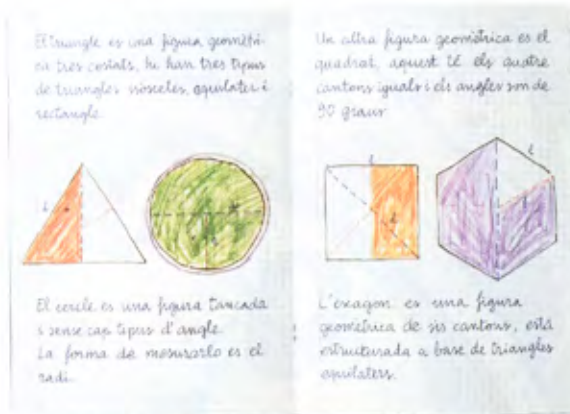 El triangle es una figura geomètri-
ca tres costats, hi han tres tipus
de triangles isosceles, equilater i
rectangle.
El cercle es una figura tancada
i sense cap tipus d'angle.
La forma de mesurarlo es el
radi.
Un altra figura geomètrica es el
quadrat, aquest té els quatre
cantons iguals i els angles son de
90 graus
l
l
L'exagon es una figura
geomètrica de sis cantons, està
estructurada a base de triangles
equilaters.